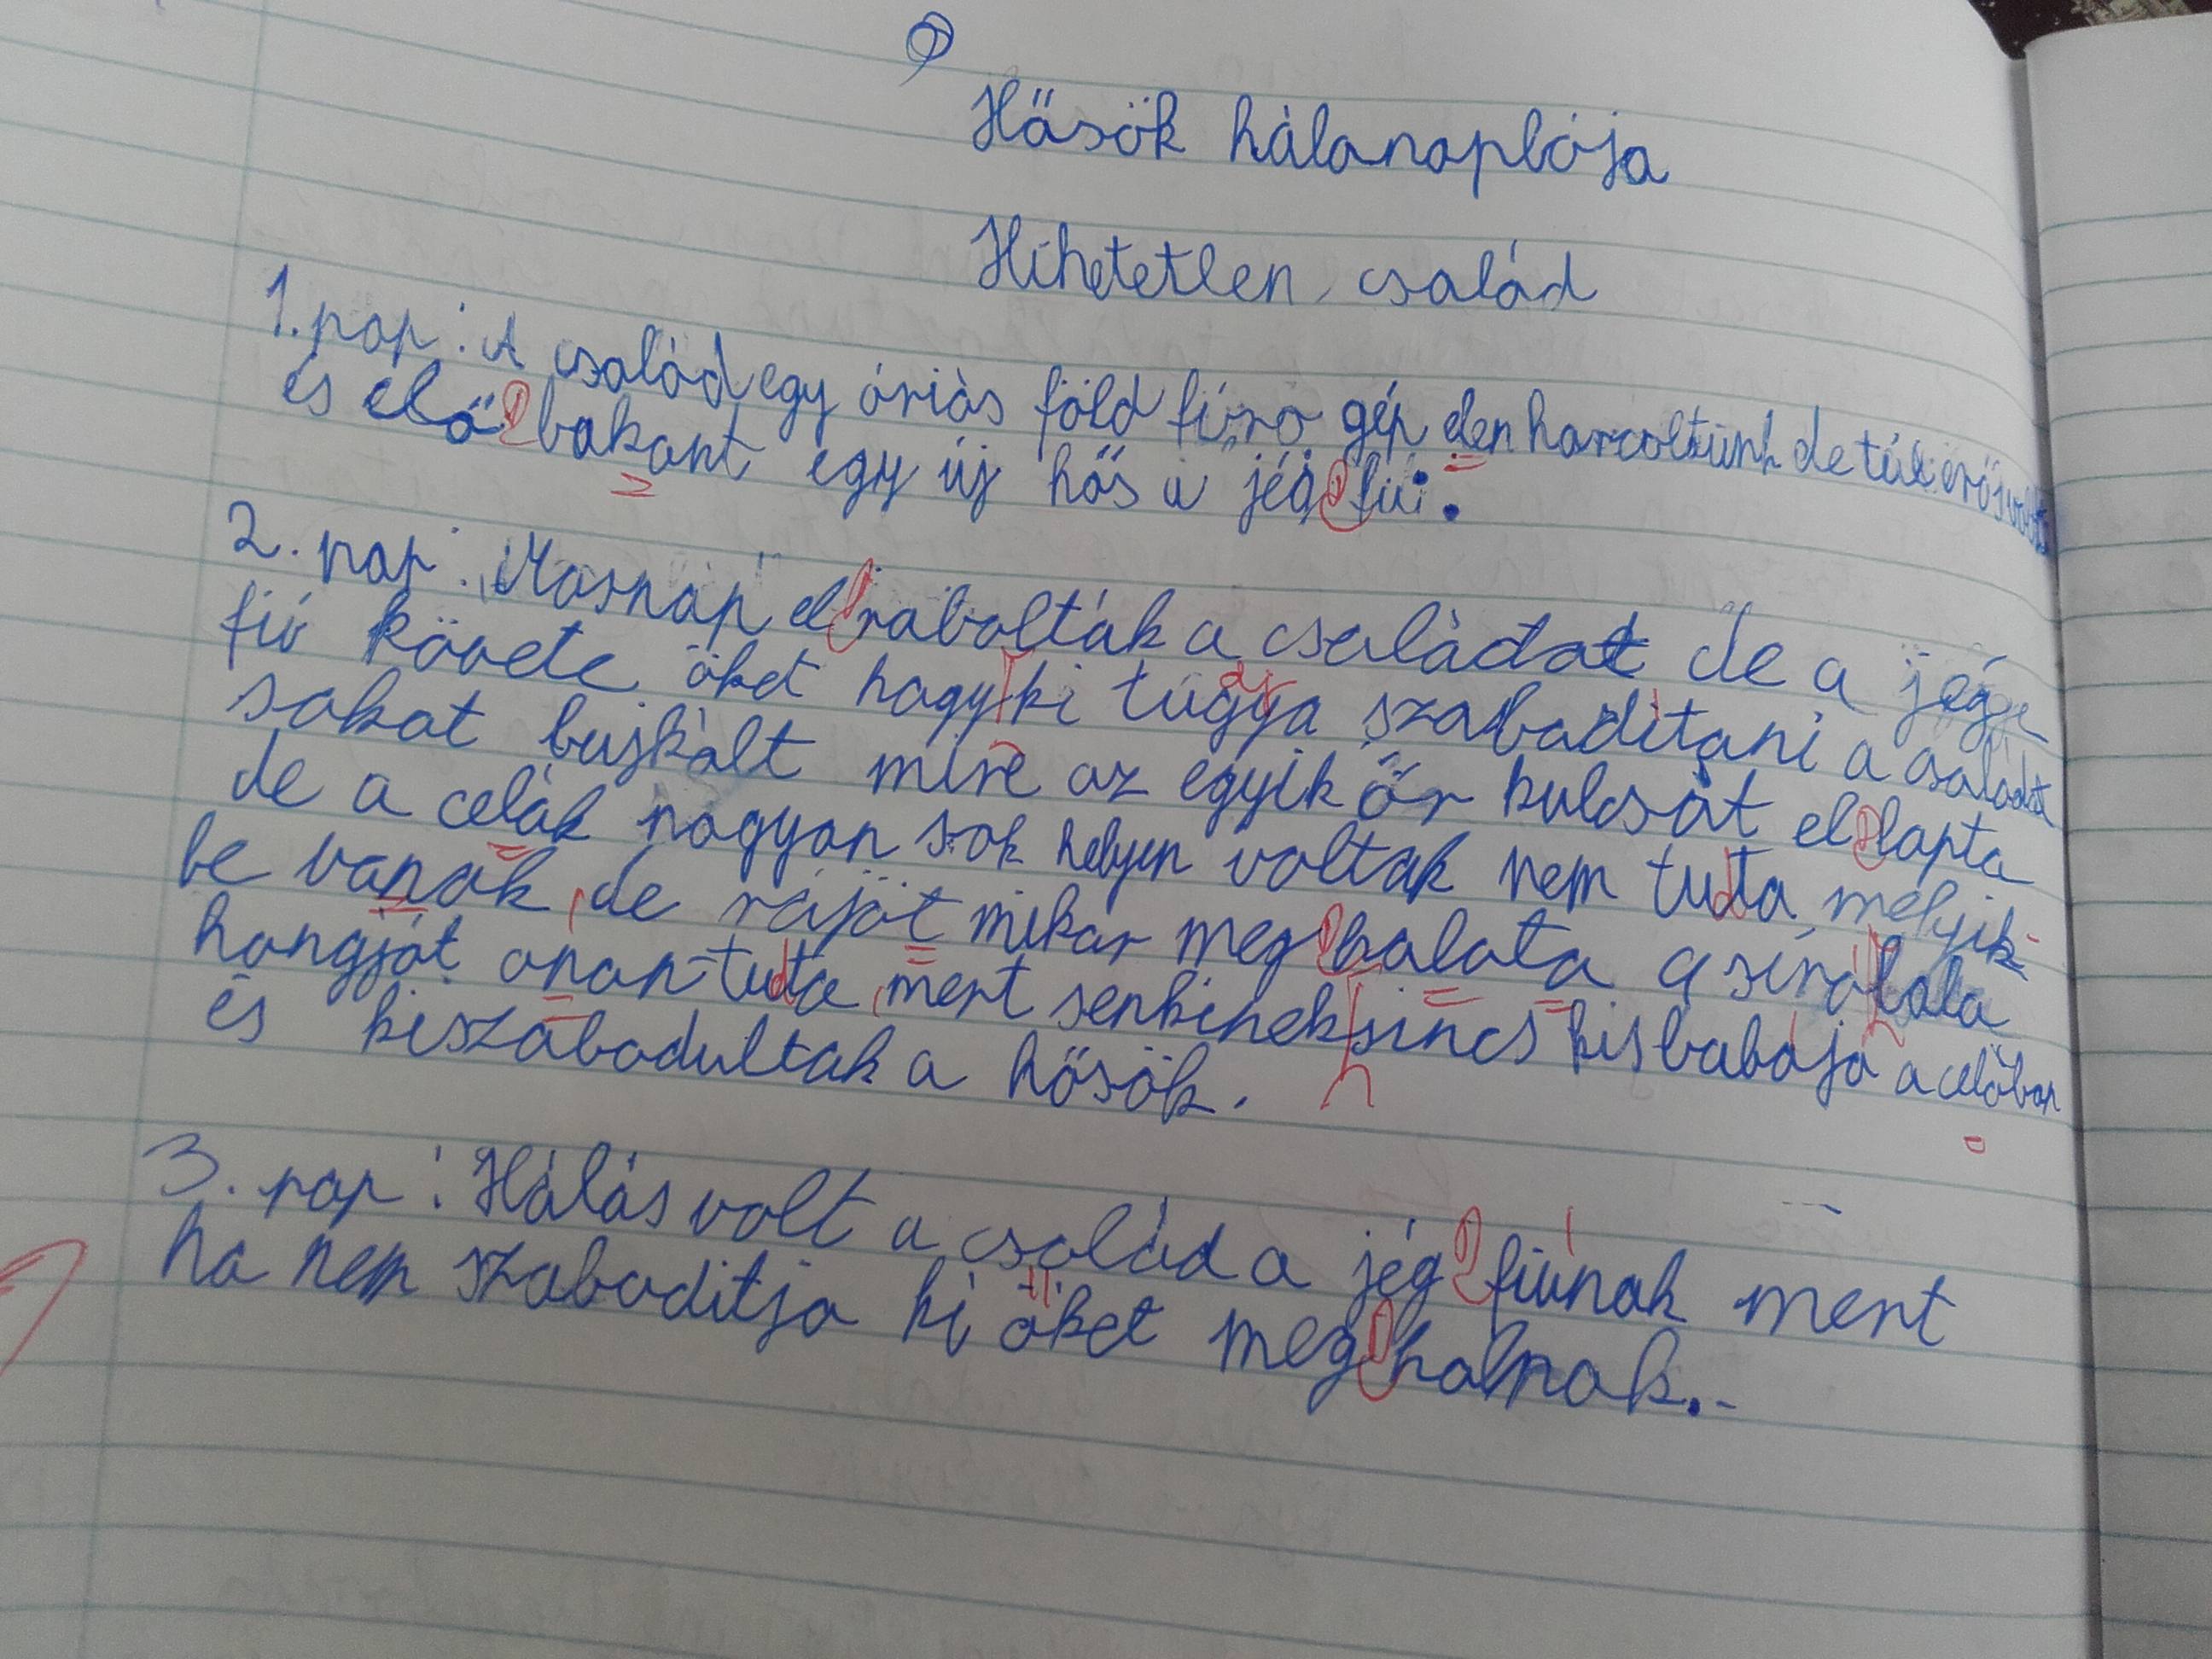 Hősök hálanaplója
Hihetetlen család
1. nap: A család egy óriás föld fúro gép elen harcoltunk de túl erős volt
és elő bakant egy új hős a jég fiú.
2. nap: Masnap el rabolták a családot de a jég
fiú követe öket hagy ki tugya szabaditani a családot
sokat bujkált mire az egyik őr kulcsát el lapta
de a celák nagyon sok helyen voltak nem tuta melyik-
be vanak de rájöt mikor meg halata a síró baba
hangját onan tuta mert senkinek sincs kisbabája a celában
és kiszabadultak a hősök.
3. nap: Hálás volt a család a jég fiúnak mert
ha nem szabaditja ki öket meg halnak.